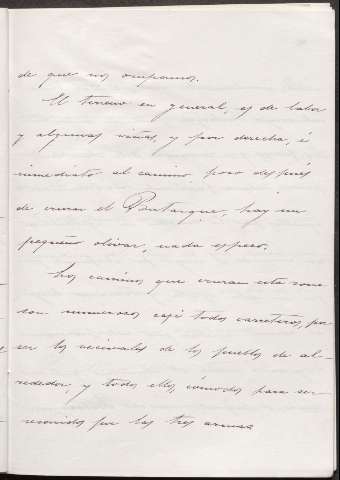 de que nos ocupamos.
El terreno en general, es de labor
y algunas viñas, y por derecha, é
inmediato al camino, poco después
de cruzar el Pantanque, hay un
pequeño olivar, nada espeso.
Los caminos que cruzan esta zona
son numerosos casi todos carreteros, por
ser los vecinales de los pueblos de al-
rededor, y todos ellos, cómodos para ser
recorridos por las tres armas